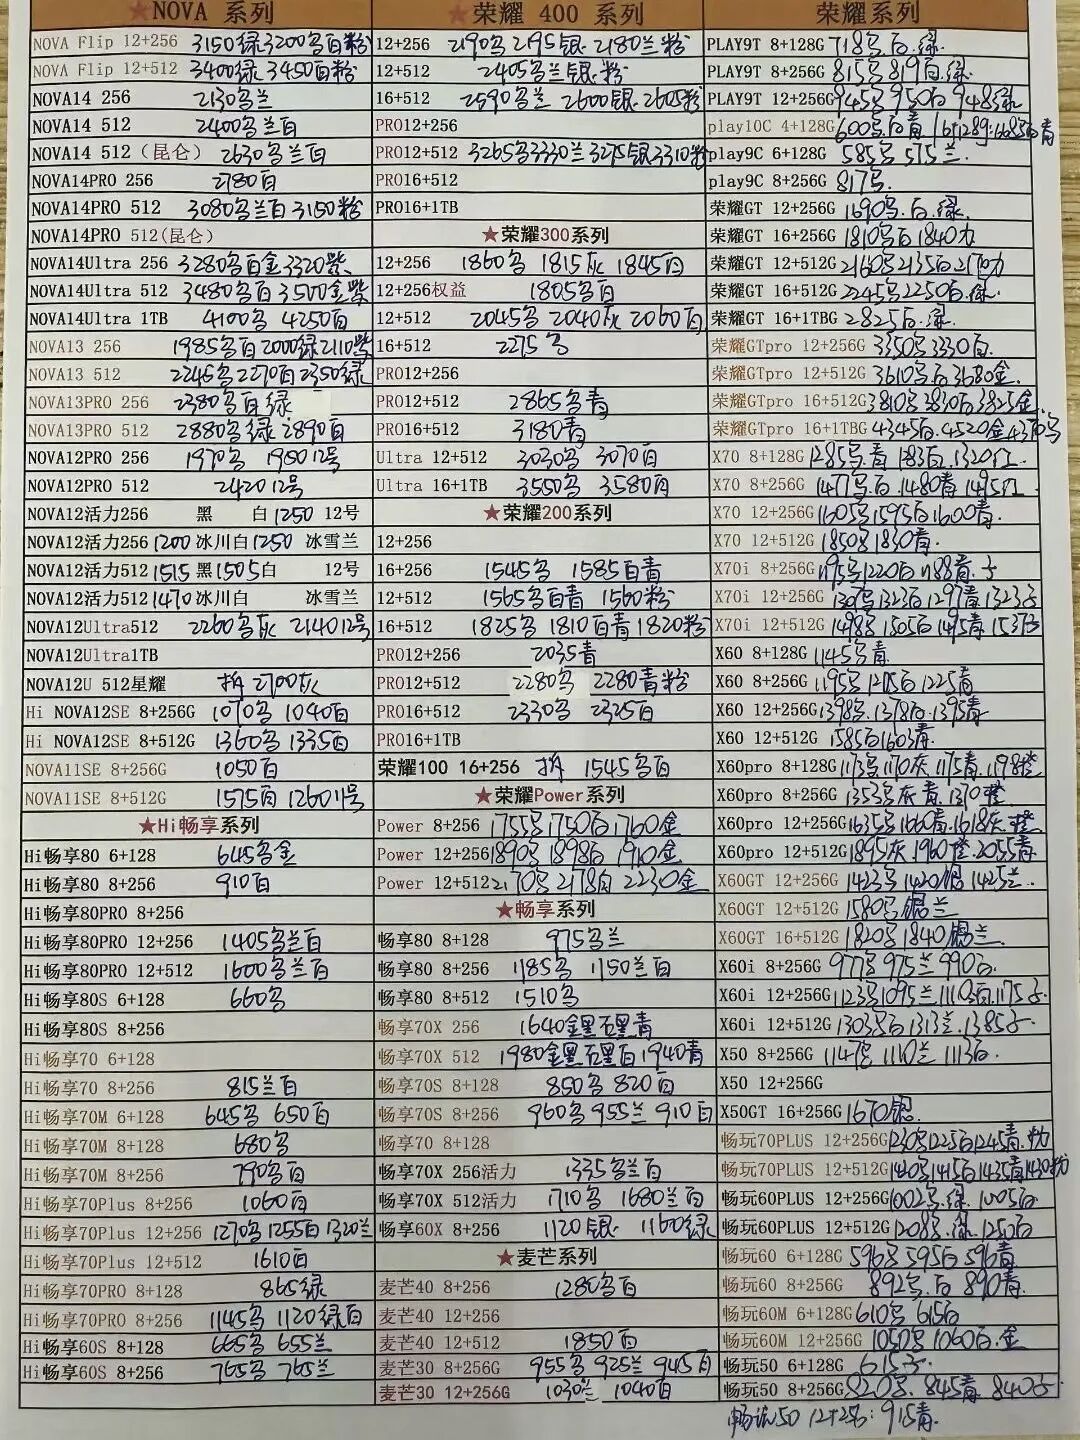 ★NOVA 系列
NOVA Flip 12+256 3150绿3200乌白粉
NOVA Flip 12+512 3400绿 3450百粉
NOVA14 256 2130乌兰
NOVA14 512 2400乌兰百
NOVA14 512（昆仑） 2630乌兰百
NOVA14PRO 256 2780百
NOVA14PRO 512 3080乌兰百 3150粉
NOVA14PRO 512(昆仑)
NOVA14Ultra 256 3280乌百金3320紫
NOVA14Ultra 512 3480乌百 3500金紫
NOVA14Ultra 1TB 4100乌 4250百
NOVA13 256 1985乌百2000绿2110紫
NOVA13 512 2245乌2270百2350绿
NOVA13PRO 256 2380乌百绿
NOVA13PRO 512 2880乌绿 2890百
NOVA12PRO 256 1970乌 1980 12号
NOVA12PRO 512 2420 12号
NOVA12活力256 黑 白1250 12号
NOVA12活力256 1200 冰川白1250 冰雪兰
NOVA12活力512 1515 黑1505白 12号
NOVA12活力512 1470冰川白 冰雪兰
NOVA12Ultra512 2260乌灰 2140 12号
NOVA12Ultra1TB
NOVA12U 512星耀 拆 2700灰
Hi NOVA12SE 8+256G 1070乌 1040百
Hi NOVA12SE 8+512G 1360乌 1335百
NOVA11SE 8+256G 1050百
NOVA11SE 8+512G 1575百 1260 11号
★Hi畅享系列
Hi畅享80 6+128 645乌金
Hi畅享80 8+256 910百
Hi畅享80PRO 8+256
Hi畅享80PRO 12+256 1405乌兰百
Hi畅享80PRO 12+512 1600乌兰百
Hi畅享80S 6+128 660乌
Hi畅享80S 8+256
Hi畅享70 6+128
Hi畅享70 8+256 815兰百
Hi畅享70M 6+128 645乌 650百
Hi畅享70M 8+128 680乌
Hi畅享70M 8+256 790乌百
Hi畅享70Plus 8+256 1060百
Hi畅享70Plus 12+256 1270乌1255百1320兰
Hi畅享70Plus 12+512 1610百
Hi畅享70PRO 8+128 865绿
Hi畅享70PRO 8+256 1145乌 1120绿百
Hi畅享60S 8+128 665乌 655兰
Hi畅享60S 8+256 765乌 765兰
★荣耀 400 系列
12+256 2190乌2195银 2180兰粉
12+512 2405乌兰银粉
16+512 2590乌兰 2600银 2605粉
PRO12+256
PRO12+512 3265乌3330兰3275银3310粉
PRO16+512
PRO16+1TB
★荣耀300系列
12+256 1860乌 1815灰 1845百
12+256权益 1805乌百
12+512 2045乌 2040灰 2060百
16+512 2275乌
PRO12+256
PRO12+512 2865乌青
PRO16+512 3180青
Ultra 12+512 3030乌 3070百
Ultra 16+1TB 3550乌 3580百
★荣耀200系列
12+256
16+256 1545乌 1585百青
12+512 1565乌百青 1560粉
16+512 1825乌 1810百青 1820粉
PRO12+256 2035青
PRO12+512 2280乌 2280青粉
PRO16+512 2330乌 2325百
PRO16+1TB
荣耀100 16+256 拆 1545乌百
★荣耀Power系列
Power 8+256 1755乌1750百1760金
Power 12+256 1890乌 1898百 1910金
Power 12+512 2170乌 2178百 2230金
★畅享系列
畅享80 8+128 975乌兰
畅享80 8+256 1185乌 1150兰百
畅享80 8+512 1510乌
畅享70X 256 1640金黑百黑青
畅享70X 512 1980金黑百黑百1940青
畅享70S 8+128 850乌 820百
畅享70S 8+256 960乌 955兰 910百
畅享70 8+128
畅享70X 256活力 1335乌兰百
畅享70X 512活力 1710乌 1680兰百
畅享60X 8+256 1120银 1160绿
★麦芒系列
麦芒40 8+256 1280乌百
麦芒40 12+256
麦芒40 12+512 1850百
麦芒30 8+256G 955乌 925兰 945百
麦芒30 12+256G 1030兰 1040百
荣耀系列
PLAY9T 8+128G 718乌.百.绿
PLAY9T 8+256G 815乌819百.绿
PLAY9T 12+256G 945乌950百948绿
play10C 4+128G 600乌百青 6+128g:668百青
play9C 6+128G 585乌 575兰
play9C 8+256G 817乌
荣耀GT 12+256G 1690乌.百.绿
荣耀GT 16+256G 1810乌百1840
荣耀GT 12+512G 2160乌2135百2170
荣耀GT 16+512G 2245乌2250百.绿
荣耀GT 16+1TBG 2825百.绿
荣耀GTpro 12+256G 3350乌3330百
荣耀GTpro 12+512G 3610乌百3680金
荣耀GTpro 16+512G 3810乌3830百3825金
荣耀GTpro 16+1TBG 4345百.4520金4370乌
X70 8+128G 1285乌.青1283百.1320红
X70 8+256G 1477乌.百.1480青1495红
X70 12+256G 1605乌1595百1600青
X70 12+512G 1850乌1830青
X70i 8+256G 1195乌1220百1188青.子
X70i 12+256G 1307乌1323百1297青1323子
X70i 12+512G 1498乌1505百1495青1537子
X60 8+128G 1145乌青
X60 8+256G 1195乌1205百1225青
X60 12+256G 1398乌.1378百.1395青
X60 12+512G 1585百1603青
X60pro 8+128G 1173乌1170灰1175青.1198橙
X60pro 8+256G 1353乌灰青.1370橙
X60pro 12+256G 1635乌1660青.1618灰.橙
X60pro 12+512G 1895灰1960橙.2055青
X60GT 12+256G 1423乌1420银1425兰
X60GT 12+512G 1580乌银兰
X60GT 16+512G 1820乌1840银兰
X60i 8+256G 977乌975兰990百
X60i 12+256G 1123乌1095兰1110百.1175子
X60i 12+512G 1303乌百1313兰.1385子
X50 8+256G 1147乌 1110兰1113百
X50 12+256G
X50GT 16+256G 1670银
畅玩70PLUS 12+256G 1230乌1225百1245青.粉
畅玩70PLUS 12+512G 1440乌1415百1435青1430粉
畅玩60PLUS 12+256G 1002乌.绿.1005百
畅玩60PLUS 12+512G 1208乌.绿.1250百
畅玩60 6+128G 596乌595百596青
畅玩60 8+256G 892乌.百890青
畅玩60M 6+128G 610乌 615百
畅玩60M 12+256G 1050乌1060百.金
畅玩50 6+128G 615子
畅玩50 8+256G 820乌.845青840子
畅玩50 12+256:915青